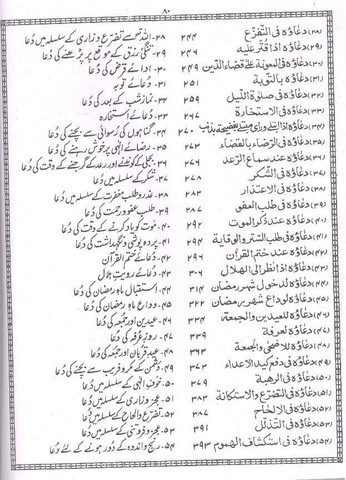 ۸۰
(۲۸) دعاؤہ فی التفزّع ۲۴۴ ۲۸۔ اللہ سے تضرّع و زاری کے سلسلہ میں دُعا
(۲۹) دعاؤہ اذا قتر علیہ ۲۴۶ ۲۹۔ تنگی رزق کے موقع پر پڑھنے کی دُعا
(۳۰) دعاؤہ فی المعونۃ علی قضاء الدّین ۲۴۹ ۳۰۔ ادائے قرض کی دُعا
(۳۱) دعاؤہ بالتوبۃ ۲۵۱ ۳۱۔ دُعائے توبہ
(۳۲) دعاؤہ فی صلوۃ اللیل ۲۵۹ ۳۲۔ نمازِ شب کے بعد کی دُعا
(۳۳) دعاؤہ فی الاستخارۃ ۲۶۷ ۳۳۔ دُعائے استخارہ
(۳۴) دعاؤہ اذا ابتلی ورای مبتلی بفضیحۃ بذنب ۲۷۰ ۳۴۔ گناہوں کی رسوائی سے بچنے کی دُعا
(۳۵) دعاؤہ فی الرّضا بالقضاء ۲۷۳ ۳۵۔ رضائے الٰہی پر خوش رہنے کی دُعا
(۳۶) دعاؤہ عند سماع الرّعد ۲۷۶ ۳۶۔ بجلی کے کوندنے اور رعد کے گرجنے کے وقت کی دُعا
(۳۷) دعاؤہ فی الشکر ۲۷۸ ۳۷۔ شکر کے سلسلہ میں دُعا
(۳۸) دعاؤہ فی الاعتذار ۲۸۳ ۳۸۔ عذر و طلب مغفرت کے سلسلہ میں دُعا
(۳۹) دعاؤہ فی طلب العفو ۲۸۷ ۳۹۔ طلب عفو و رحمت کی دُعا
(۴۰) دعاؤہ عند ذکر الموت ۲۹۲ ۴۰۔ موت کو یاد کرنے کے وقت کی دُعا
(۴۱) دعاؤہ فی طلب الستر والوقایۃ ۲۹۴ ۴۱۔ پردہ پوشی و نگہداشت کی دُعا
(۴۲) دعاؤہ عند ختم القرآن ۲۹۶ ۴۲۔ دُعائے ختم القرآن
(۴۳) دعاؤہ اذا نظر الی الھلال ۳۰۶ ۴۳۔ دُعائے رویتِ ہلال
(۴۴) دعاؤہ لدخول شھر رمضان ۳۱۴ ۴۴۔ استقبال ماہ رمضان کی دُعا
(۴۵) دعاؤہ لوداع شھر رمضان ۳۲۲ ۴۵۔ وداع ماہ رمضان کی دُعا
(۴۶) دعاؤہ للعیدین والجمعۃ ۳۳۴ ۴۶۔ عیدین اور جمعہ کی دُعا
(۴۷) دعاؤہ لعرفۃ ۳۳۹ ۴۷۔ روزِ عرفہ کی دُعا
(۴۸) دعاؤہ للاضحٰی والجمعۃ ۳۶۳ ۴۸۔ عید قربان اور جمعہ کی دُعا
(۴۹) دعاؤہ فی دفع کید الاعداء ۳۷۳ ۴۹۔ دشمن کے مکر و فریب سے بچنے کی دُعا
(۵۰) دعاؤہ فی الرھبۃ ۳۷۹ ۵۰۔ خوفِ الٰہی کے سلسلہ میں دُعا
(۵۱) دعاؤہ فی التضرّع والاستکانۃ ۳۸۲ ۵۱۔ عجز و زاری کے سلسلہ میں دُعا
(۵۲) دعاؤہ فی الالحاح ۳۸۷ ۵۲۔ تضرّع و الحاح کے سلسلہ میں دُعا
(۵۳) دعاؤہ فی التذلّل ۳۹۱ ۵۳۔ عجز و فروتنی کے سلسلہ میں دُعا
(۵۴) دعاؤہ فی استکشاف الھموم ۳۹۳ ۵۴۔ رنج و اندوہ کے دُور ہونے کے لئے دُعا